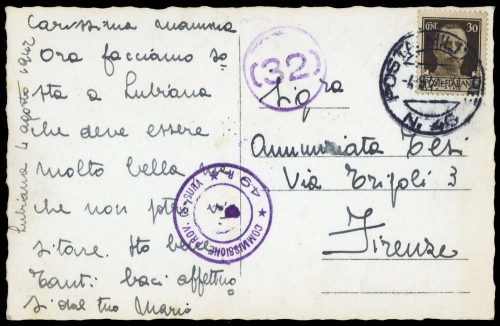 Lubiana 4 agosto 1942
Carissima mamma
Ora facciamo so
sta a Lubiana
che deve essere
molto bella
che non
sitare. Sto bene
Tanti baci affettuo
si dal tuo Mario
(32)
49
COMMISSIONE PROV. CENSURA
CENT. 30
POSTE ITALIANE
POSTA MILITARE
N. 46
Sig.ra
Annunziata Tesi
Via Tripoli 3
Firenze